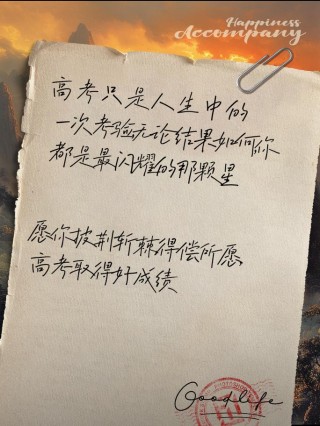 Happiness
Accompany
高考只是人生中的
一次考验无论结果如何你
都是最闪耀的那颗星
愿你披荆斩棘得偿所愿
高考取得好成绩
Goodlife